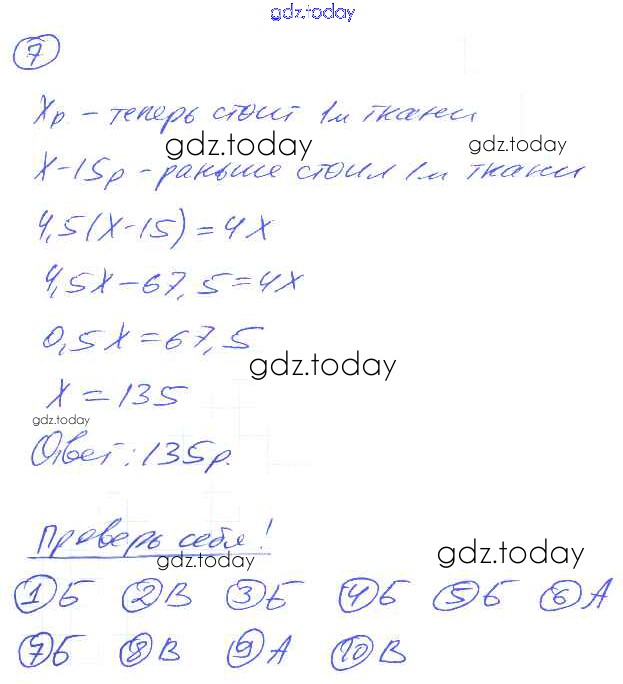 gdz.today
7
Xр – теперь стоит 1м ткани
gdz.today gdz.today
X–15р – раньше стоил 1м ткани
4,5(X–15)=4X
4,5X–67,5=4X
0,5X=67,5
gdz.today
X=135
gdz.today
Ответ: 135р.
Проверь себя!
gdz.today gdz.today
1 Б 2 В 3 Б 4 Б 5 Б 6 А
7 Б 8 В 9 А 10 В